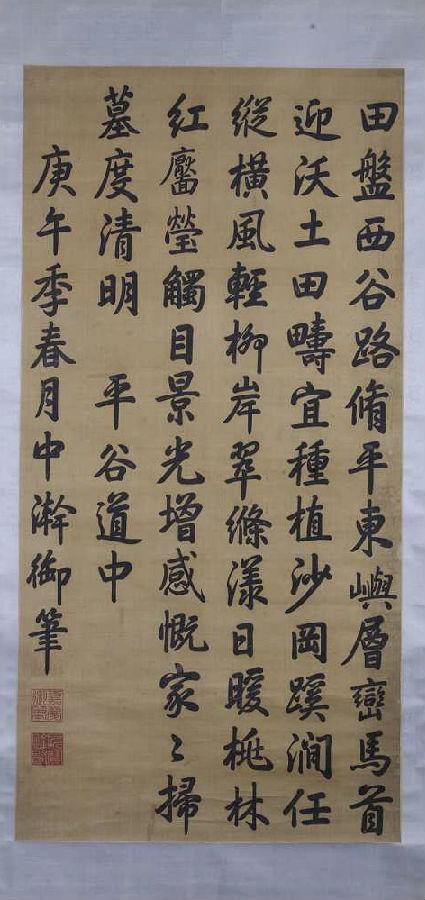 田盤西谷路脩平東嶼層巒馬首
迎沃土田疇宜種植沙岡蹊澗任
縱橫風輕柳岸翠絛漾日暖桃林
紅靨瑩觸目景光增感慨家〻掃
墓度清明　平谷道中
庚午季春月中澣御筆